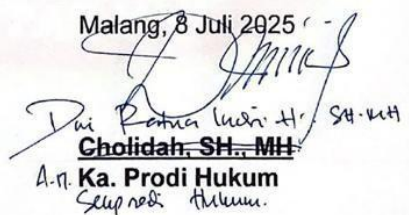 Malang, 8 Juli 2025
Dwi Ratna Indri H. SH. MH
Cholidah, SH., MH
A.n. Ka. Prodi Hukum
Hukum.